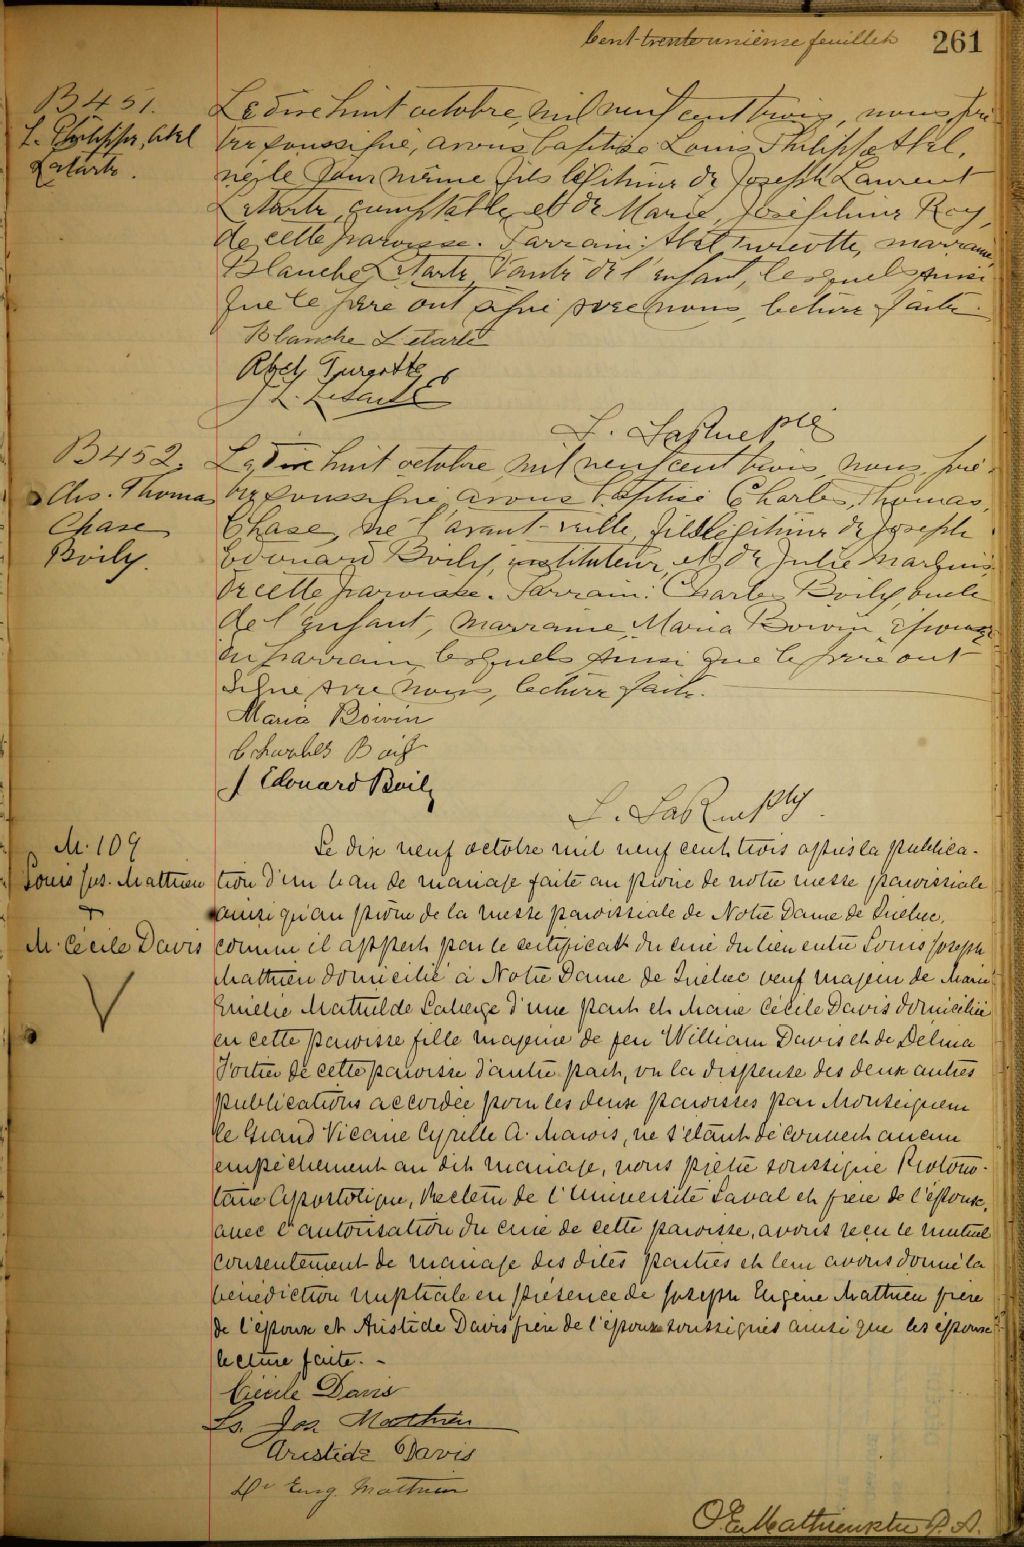 Cent-trente unième feuillet 261
B 451.
L. Philippe, Abel
Letarte.
Le dix huit octobre, mil neuf cent trois, nous, prê-
tre soussigné, avons baptisé Louis Philippe Abel,
né le jour même, fils légitime de Joseph Laurent
Letarte, comptable, et de Marie, Joséphine Roy,
de cette paroisse. Parrain: Abel Turcotte, marraine,
Blanche Letarte, tante de l'enfant, lesquels ainsi
que le père ont signé avec nous, lecture faite.
Blanche Letarte
Abel Turcotte
J L. Letarte
L. LaRue ptre
B 452.
Chs. Thomas
Chase
Boily.
Le dix huit octobre, mil neuf cent trois, nous, prê-
tre soussigné, avons baptisé Charles, Thomas,
Chase, né l'avant-veille, fils légitime de Joseph
Edouard Boily, instituteur, et de Julie Marquis,
de cette paroisse. Parrain: Charles Boily, oncle
de l'enfant, marraine, Maria Boivin, épouse
du parrain, lesquels ainsi que le père ont
signé avec nous, lecture faite.
Maria Boivin
Charles Boily
J Edouard Boily
L. LaRue Ptre.
M. 109
Louis Jos. Mathieu
+
M. Cécile Davis
Le dix neuf octobre mil neuf cent trois après la publica-
tion d'un ban de mariage faite au prône de notre messe paroissiale
ainsi qu'au prône de la messe paroissiale de Notre Dame de Québec,
comme il appert par le certificat du curé du lieu entre Louis Joseph
Mathieu domicilié à Notre Dame de Québec veuf majeur de Marie
Emélie Mathilde Laberge d'une part et Marie Cécile Davis domiciliée
en cette paroisse fille majeure de feu William Davis et de Delima
Fortier de cette paroisse d'autre part, vu la dispense des deux autres
publications accordée pour les deux paroisses par Monseigneur
le Grand Vicaire Cyrille A. Marois, ne s'étant découvert aucun
empêchement au dit mariage, nous prêtre soussigné Protono-
taire Apostolique, Recteur de l'Université Laval et frère de l'époux,
avec l'autorisation du curé de cette paroisse, avons reçu le mutuel
consentement de mariage des dites parties et leur avons donné la
bénédiction nuptiale en présence de Joseph Eugène Mathieu frère
de l'époux et Aristide Davis frère de l'épouse soussignés ainsi que les époux
lecture faite. -
Cécile Davis
Ls. Jos Mathieu
Aristide Davis
Dr Eug. Mathieu
O. E. Mathieu ptre P. A.